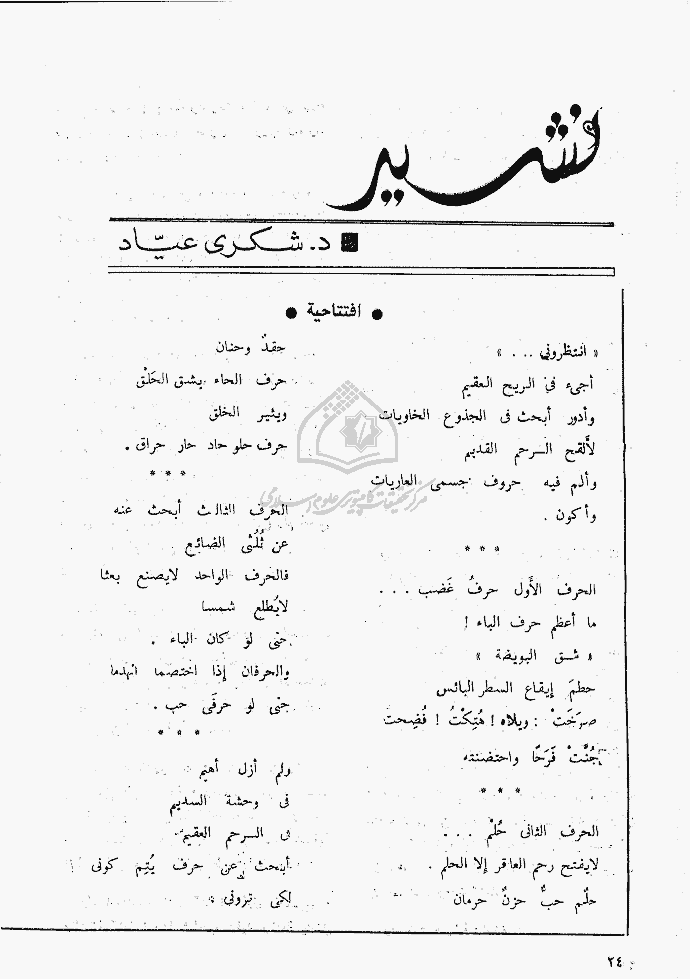 نشيد
د. شكرى عيّاد
● افتتاحية ●
« انتظروني .. . »
أجيء في الريح العقيم
وأدور أبحث فى الجذوع الخاويات
لألقح الرحم القديم
وألم فيه حروف جسمى العاريات
وأكون .
* * *
الحرف الأول حرفُ غَضب . . .
ما أعظم حرف الباء !
« شق البويضة »
حطمَ إيقاع السطر البائس
صرخَتْ : ويلاه ! هُتِكْتُ ! فُضِحت
جُنَّتْ فَرَحًا واحتضنته
* * *
الحرف الثانى حُلْم . . .
لايفتح رحم العاقر إلا الحلم .
حلْم حبٌّ حزنٌ حرمان
حقدٌ وحنان
حرف الحاء يشق الحَلْق
ويثير الخلق
حرف حلو حاد حار حراق .
* * *
الحرف الثالث أبحث عنه
عن ثُلُثى الضائع
فالحرف الواحد لايصنع بعثا
لايُطلع شمسا
حتى لو كان الباء .
والحرفان إذا اختصما انهدما
حتى لو حرفَى حب .
* * *
ولم أزل أهيم
فى وحشة السديم
فى الرحم العقيم
أبحث عن حرف يُتِم كونى
لكى تروني .
مركز تحقيقات كامپيوترى علوم اسلامى
٢٤